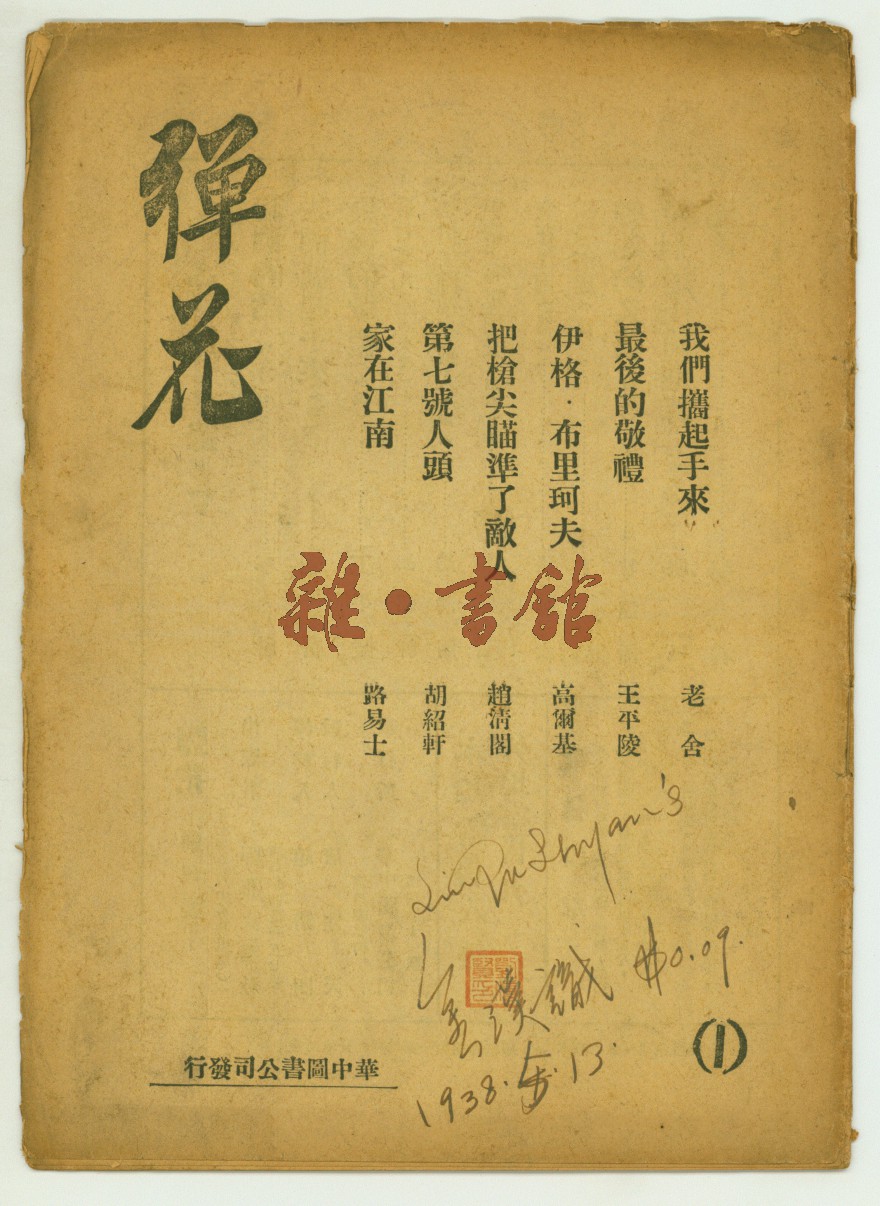 彈花
我們攜起手來 老舍
最後的敬禮 王平陵
伊格·布里珂夫 高爾基
把槍尖瞄準了敵人 趙清閣
第七號人頭 胡紹軒
家在江南 路易士
雜•書館
$0.09.
1938.5.13.
(1)
行發司公書圖中華